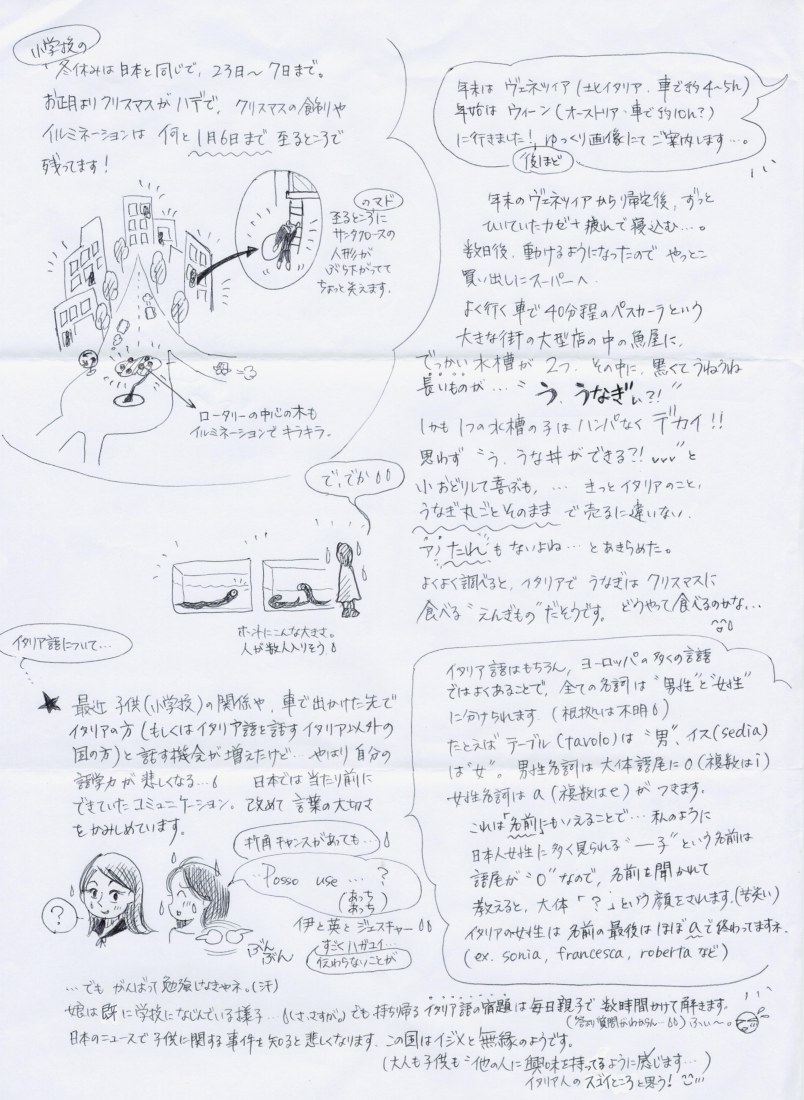 小学校の
冬休みは日本と同じで、23日〜7日まで。
お正月よりクリスマスがハデで、クリスマスの飾りや
イルミネーションは 何と1月6日まで 至るところで
残ってます！
のマド
至るところに
サンタクロースの
人形が
ぶら下がってて
ちょっと笑えます。
ロータリーの中心の木も
イルミネーションでキラキラ。
年末は ヴェネツィア（北イタリア、車で約4~5h）
年始は ウィーン（オーストリア・車で約10h？）
に行きました！ゆっくり画像にてご案内します…。
後ほど
年末のヴェネツィアから帰宅後、ずっと
ひいていたカゼ＋疲れで寝込む…。
数日後、動けるようになったので やっとこ
買い出しにスーパーへ
よく行く車で40分程のペスカーラという
大きな街の大型店の中の魚屋に、
でっかい水槽が 2つ、その中に、黒くてうねうね
長いものが…“う、うなぎぃ?!”
しかも1つの水槽の子はハンパなく デカイ!!
思わず “う、うな丼ができる?!”と
小おどりして喜ぶも、… きっとイタリアのこと、
うなぎ丸ごとそのまま で売るに違いない、
アノたれもないよね…とあきらめた。
よくよく調べると、イタリアで うなぎは クリスマスに
食べる“えんぎもの”だそうです。どうやって食べるのかな…
で、でか
ホントにこんな大きさ。
人が数人入りそう
イタリア語について…
★ 最近 子供（小学校）の関係や、車で出かけた先で
イタリアの方（もしくはイタリア語を話すイタリア以外の
国の方）と話す機会が増えたけど… やはり自分の
語学力が悲しくなる… 日本では当たり前に
できていたコミュニケーション。改めて 言葉の大切さ
をかみしめています。
折角チャンスがあっても…
Posso use … ?
（あっち
おっち）
伊と英とジェスチャー
すごくハガユイ…
伝わらないことが
ぶん
ぶん
？
イタリア語はもちろん、ヨーロッパの多くの言語
ではよくあることで、全ての名詞は“男性”と“女性”
に分けられます。（根拠は不明）
たとえば テーブル（tavolo）は“男”、イス（sedia）
は“女”。男性名詞は 大体語尾に o（複数は i）
女性名詞は a（複数は e）がつきます。
これは「名前」にもいえることで… 私のように
日本人女性に多く見られる“―子”という名前は
語尾が“o”なので、名前を聞かれて
教えると、大体「？」という顔をされます。（苦笑い）
イタリアの女性は 名前の最後は ほぼaで終わってますネ
（ex. sonia, francesca, roberta など）
…でも がんばって勉強しなきゃネ。（汗）
娘は既に学校になじんでいる様子…（さ、さすが。）でも持ち帰る イタリア語の宿題は毎日親子で数時間かけて解きます。
（答より質問がわからん…）ふぃ〜。
日本のニュースで子供に関する事件を知ると悲しくなります。この国はイジメと無縁のようです。
（大人も子供も 他の人に興味を持ってるように感じます…）
イタリア人のスゴイところと思う！